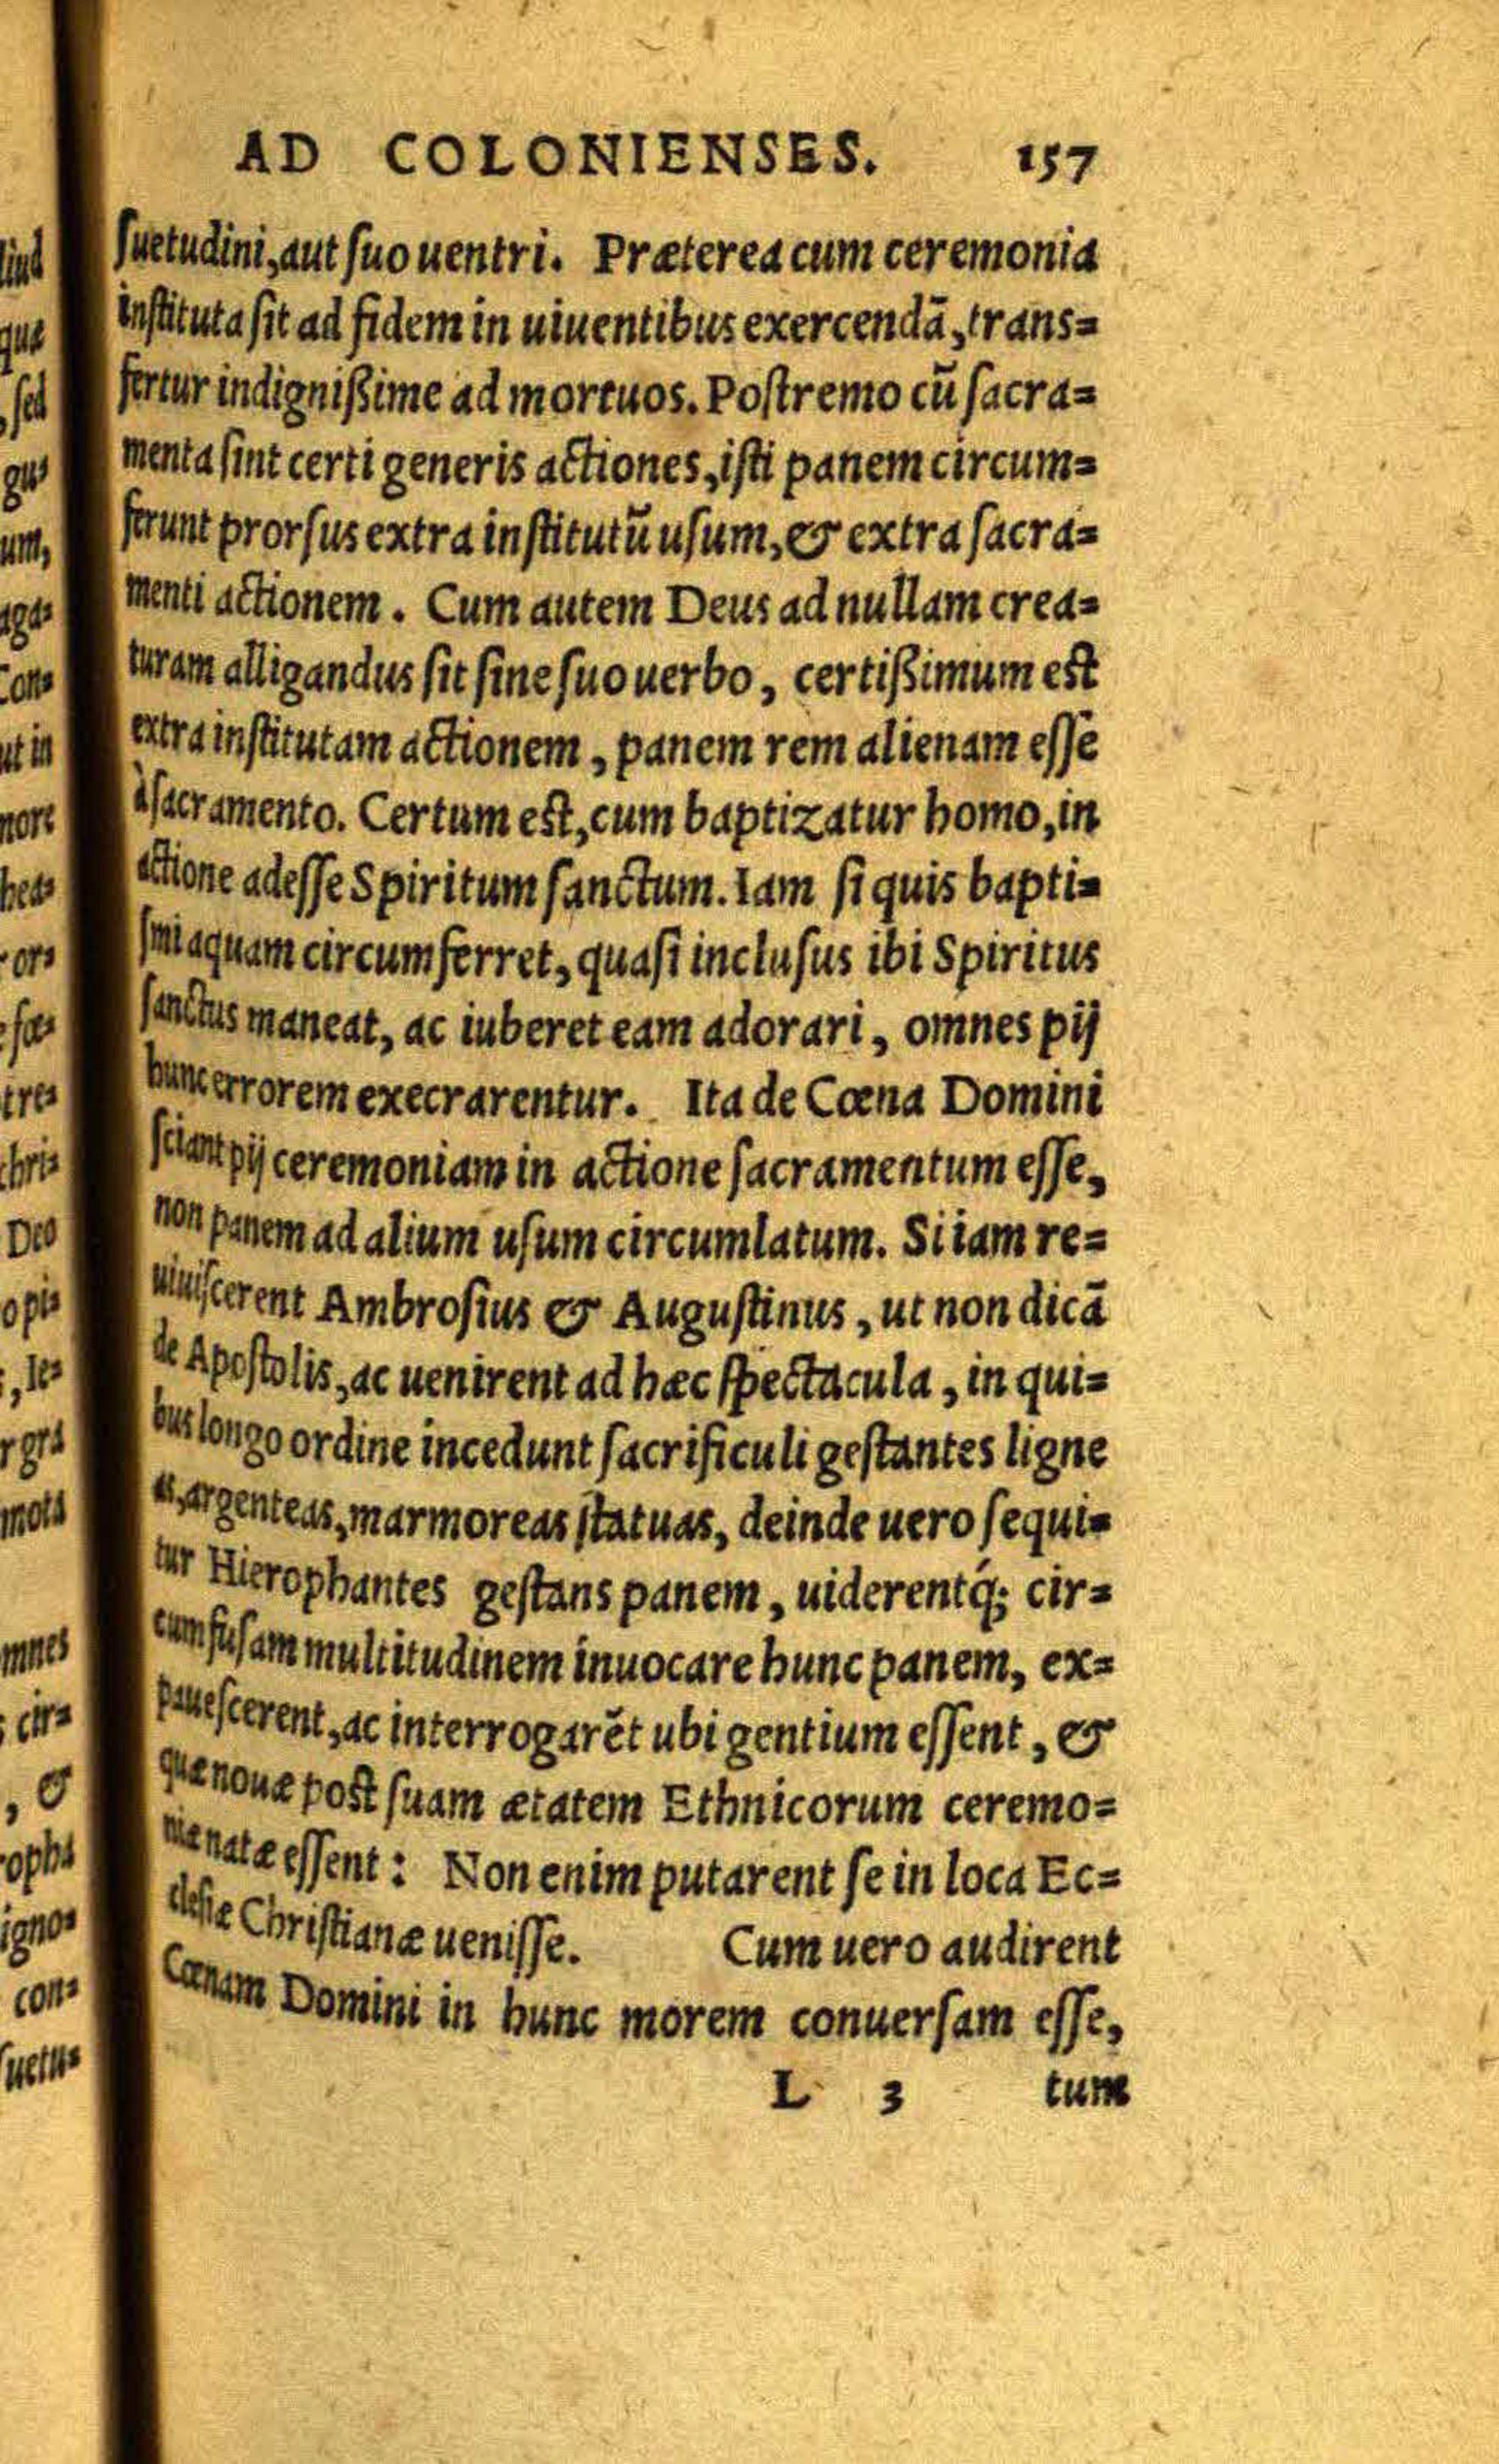 AD COLONIENSES. 157
ſuetudini, aut ſuo uentri. Præterea cum ceremonia
inſtituta ſit ad fidem in uiuentibus exercendā, trans=
fertur indignißime ad mortuos. Poſtremo cū ſacra=
menta ſint certi generis actiones, iſti panem circum=
ferunt prorſus extra inſtitutū uſum, & extra ſacra=
menti actionem. Cum autem Deus ad nullam crea=
turam alligandus ſit ſine ſuo uerbo, certißimum eſt
extra inſtitutam actionem, panem rem alienam eſſe
à ſacramento. Certum eſt, cum baptizatur homo, in
actione adeſſe Spiritum ſanctum. Iam ſi quis bapti=
ſmi aquam circumferret, quaſi incluſus ibi Spiritus
ſanctus maneat, ac iuberet eam adorari, omnes pij
hunc errorem execrarentur. Ita de Cœna Domini
ſciant pij ceremoniam in actione ſacramentum eſſe,
non panem ad alium uſum circumlatum. Si iam re=
uiuiſcerent Ambroſius & Auguſtinus, ut non dicā
de Apoſtolis, ac uenirent ad hæc ſpectacula, in qui=
bus longo ordine incedunt ſacrificuli geſtantes ligne
as, argenteas, marmoreas ſtatuas, deinde uero ſequi=
tur Hierophantes geſtans panem, uiderentq́; cir=
cumfuſam multitudinem inuocare hunc panem, ex=
paueſcerent, ac interrogarēt ubi gentium eſſent, &
quæ nouæ poſt ſuam ætatem Ethnicorum ceremo=
niæ natæ eſſent: Non enim putarent ſe in loca Ec=
cleſiæ Chriſtianæ ueniſſe. Cum uero audirent
Cœnam Domini in hunc morem conuerſam eſſe,
L 3 tum